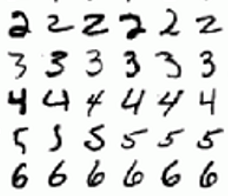 2 2 2 2 2 2
3 3 3 3 3 3
4 4 4 4 4 4
5 5 5 5 5 5
6 6 6 6 6 6